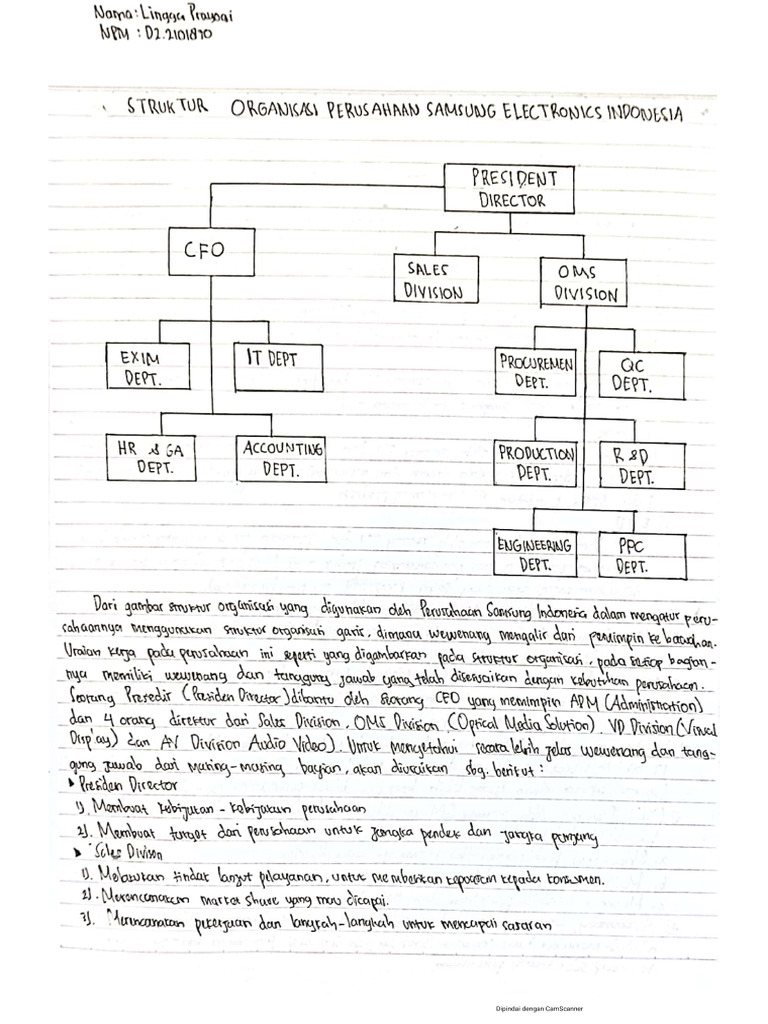 Nama: Lingga Prayogi
NPM : D2.2101870
STRUKTUR ORGANISASI PERUSAHAAN SAMSUNG ELECTRONICS INDONESIA
PRESIDENT
DIRECTOR
CFO
SALES
DIVISION
OMS
DIVISION
EXIM
DEPT.
IT DEPT
PROCUREMEN
DEPT.
QC
DEPT.
HR & GA
DEPT.
ACCOUNTING
DEPT.
PRODUCTION
DEPT.
R &D
DEPT.
ENGINEERING
DEPT.
PPC
DEPT.
Dari gambar struktur organisasi yang digunakan oleh Perusahaan Samsung Indonesia dalam mengatur peru-
sahaannya menggunakan struktur organisasi garis, dimana wewenang mengalir dari pemimpin ke bawahan.
Uraian kerja pada perusahaan ini seperti yang digambarkan pada struktur organisasi, pada setiap bagian-
nya memiliki wewenang dan tanggung jawab yang telah disesuaikan dengan kebutuhan perusahaan.
Seorang Presedir (Presiden Director) dibantu oleh seorang CFO yang memimpin ADM (Administration)
dan 4 orang direktur dari Sales Division, OMS Division, (Optical Media Solution), VD Division (Visual
Display) dan AV Division Audio Video). Untuk mengetahui secara lebih jelas wewenang dan tang-
gung jawab dari masing-masing bagian, akan diuraikan sbg. berikut :
Presiden Director
1). Membuat kebijakan - kebijakan perusahaan
2). Membuat target dari perusahaan untuk jangka pendek dan jangka panjang
Sales Divison
1). Melakukan tindak lanjut pelayanan, untuk memberikan kepuasan kepada konsumen.
2). Merencanakan market share yang mau dicapai.
3). Merencanakan pekerjaan dan langkah-langkah untuk mencapai sasaran
Dipindai dengan CamScanner